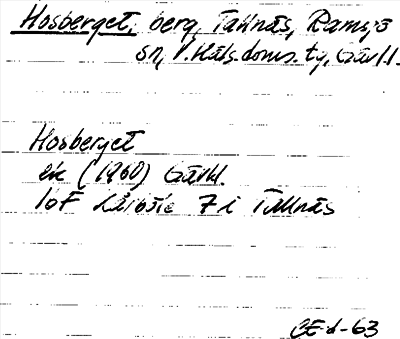 Hosberget, berg, Tallnäs, Ramsjö
sn, V. Häls. doms. tg, Gävl. l.
Hosberget
ek (1960) Gävl.
10F Laforsen 7 i Tallnäs
BE-d-63